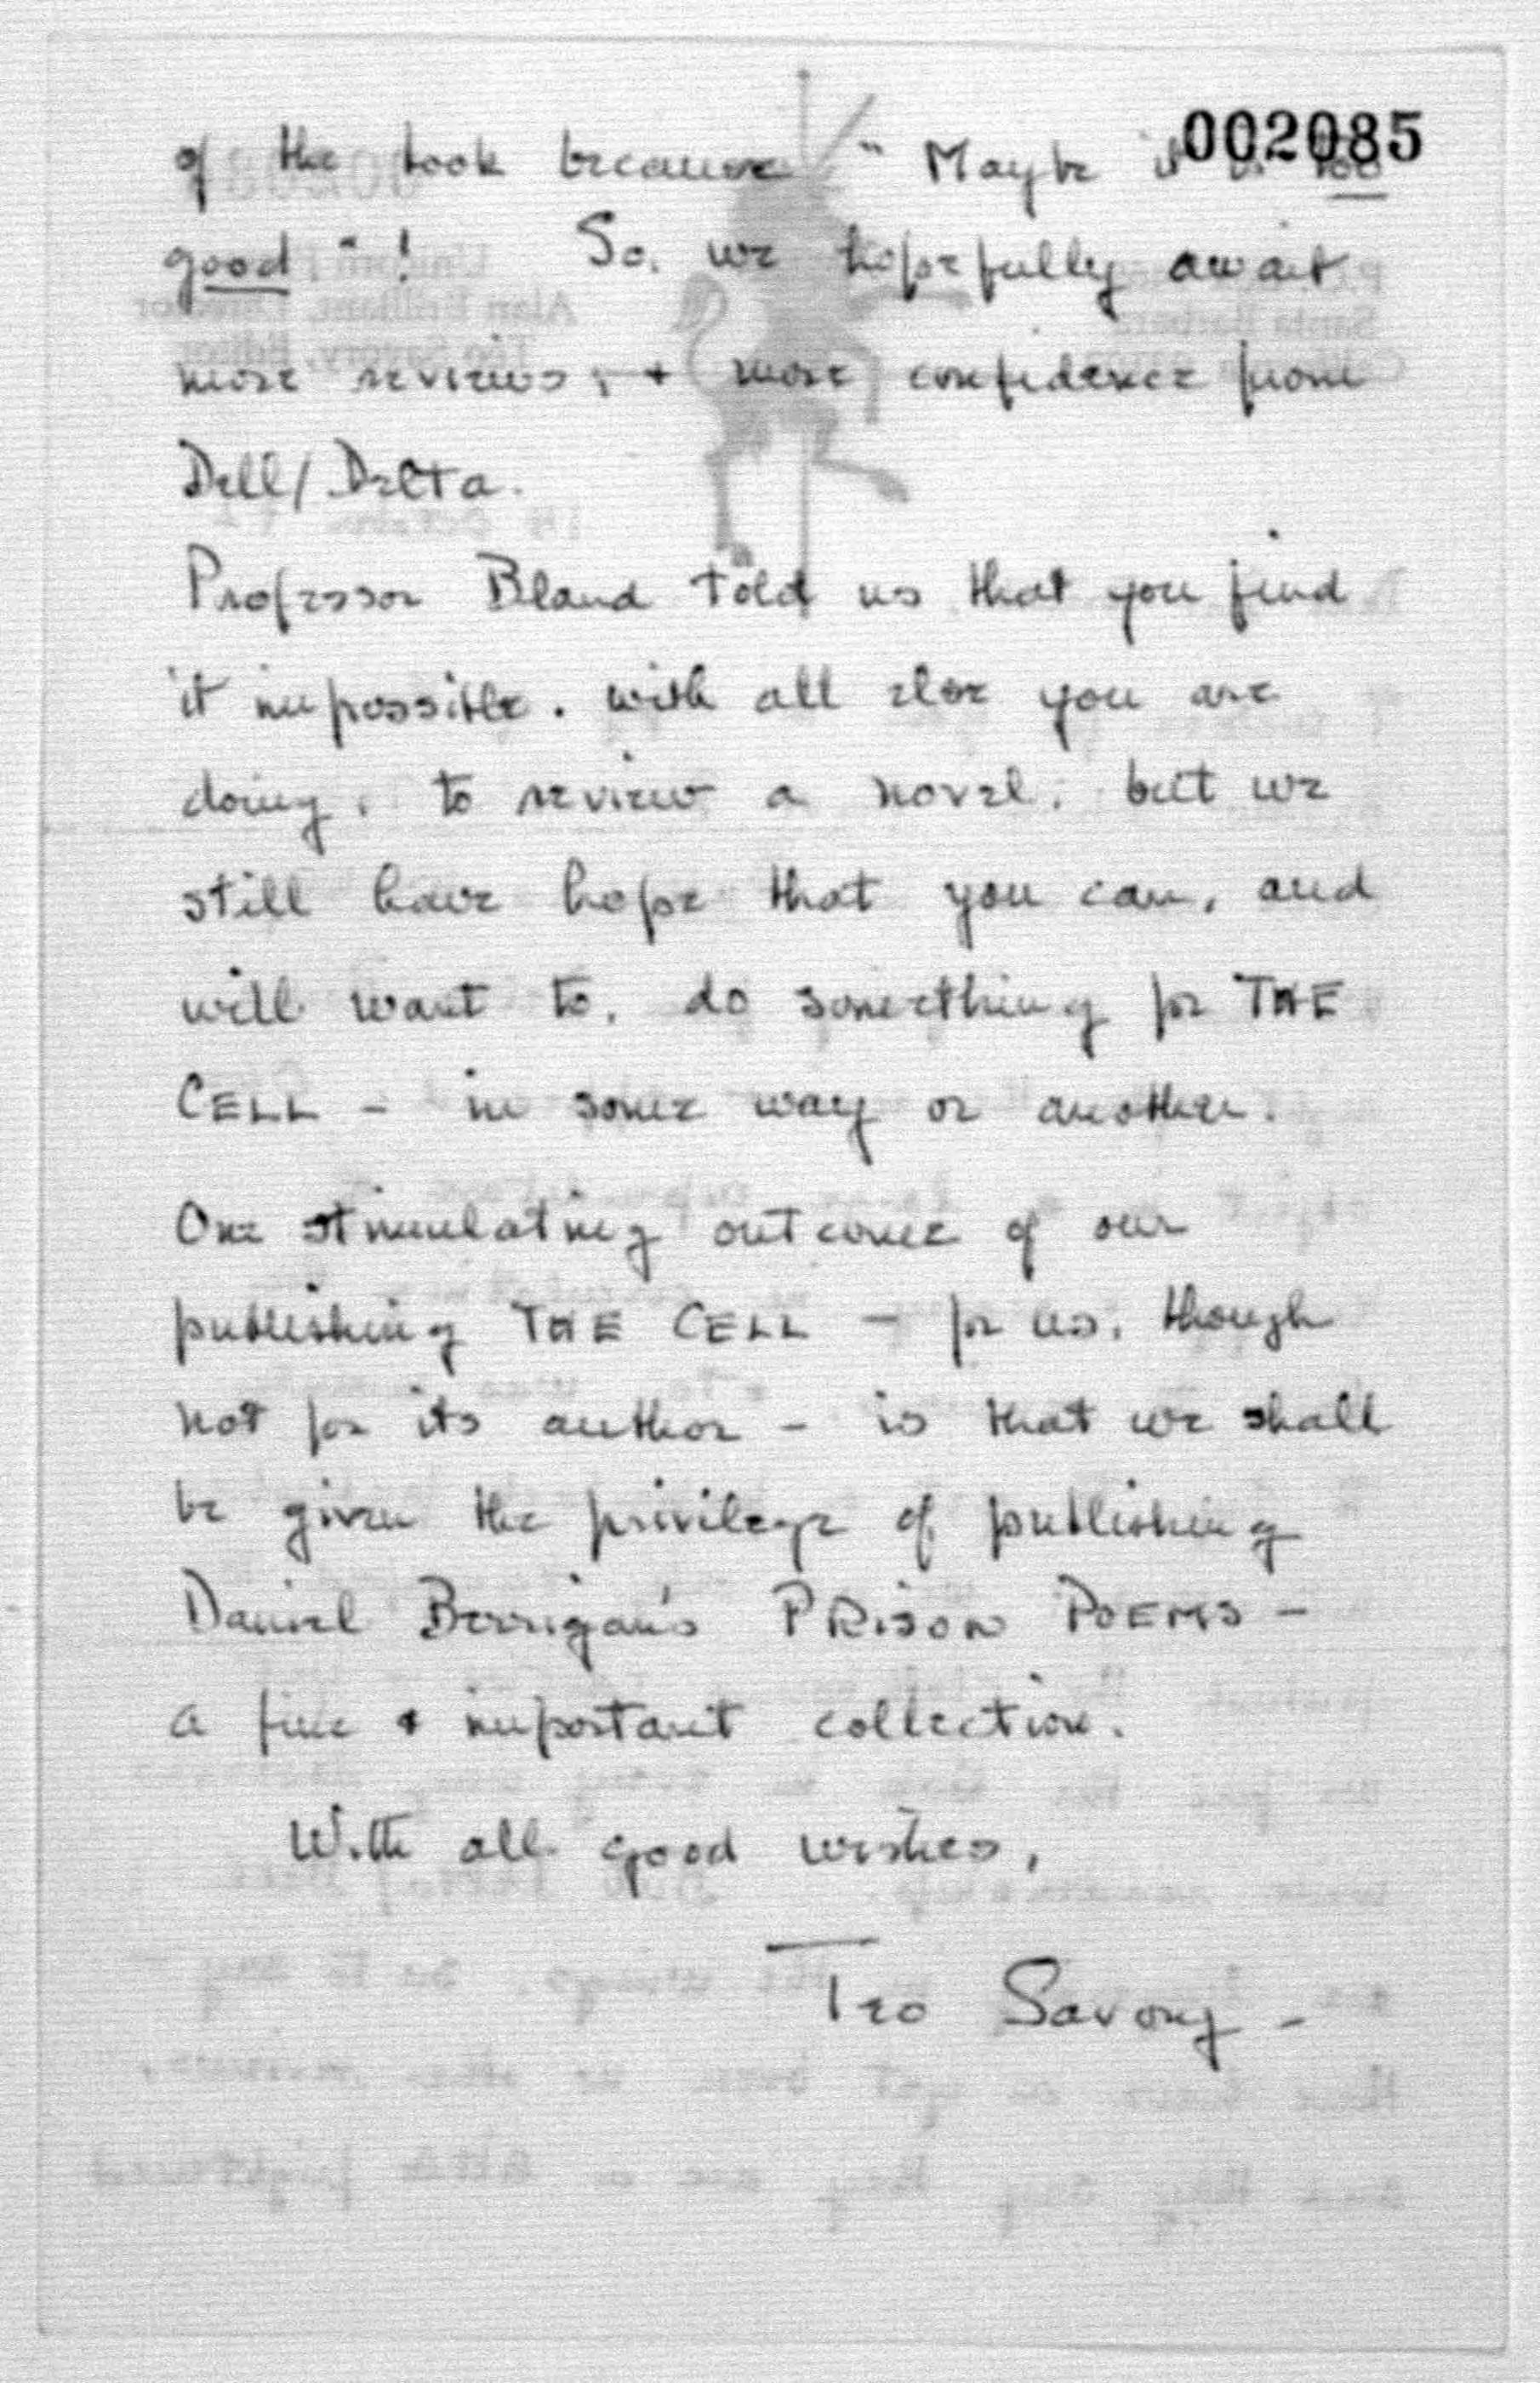 002085
of the book because "Maybe it is too
good"! So, we hopefully await
more reviews, + more confidence from
Dell/Delta.
Professor Bland told us that you find
it impossible, with all else you are
doing, to review a novel, but we
still have hope that you can, and
will want to, do something for THE
CELL - in some way or another.
One stimulating outcome of our
publishing THE CELL - for us, though
not for its author - is that we shall
be given the privilege of publishing
Daniel Berrigan's PRISON POEMS -
a fine + important collection.
With all good wishes,
Teo Savory -